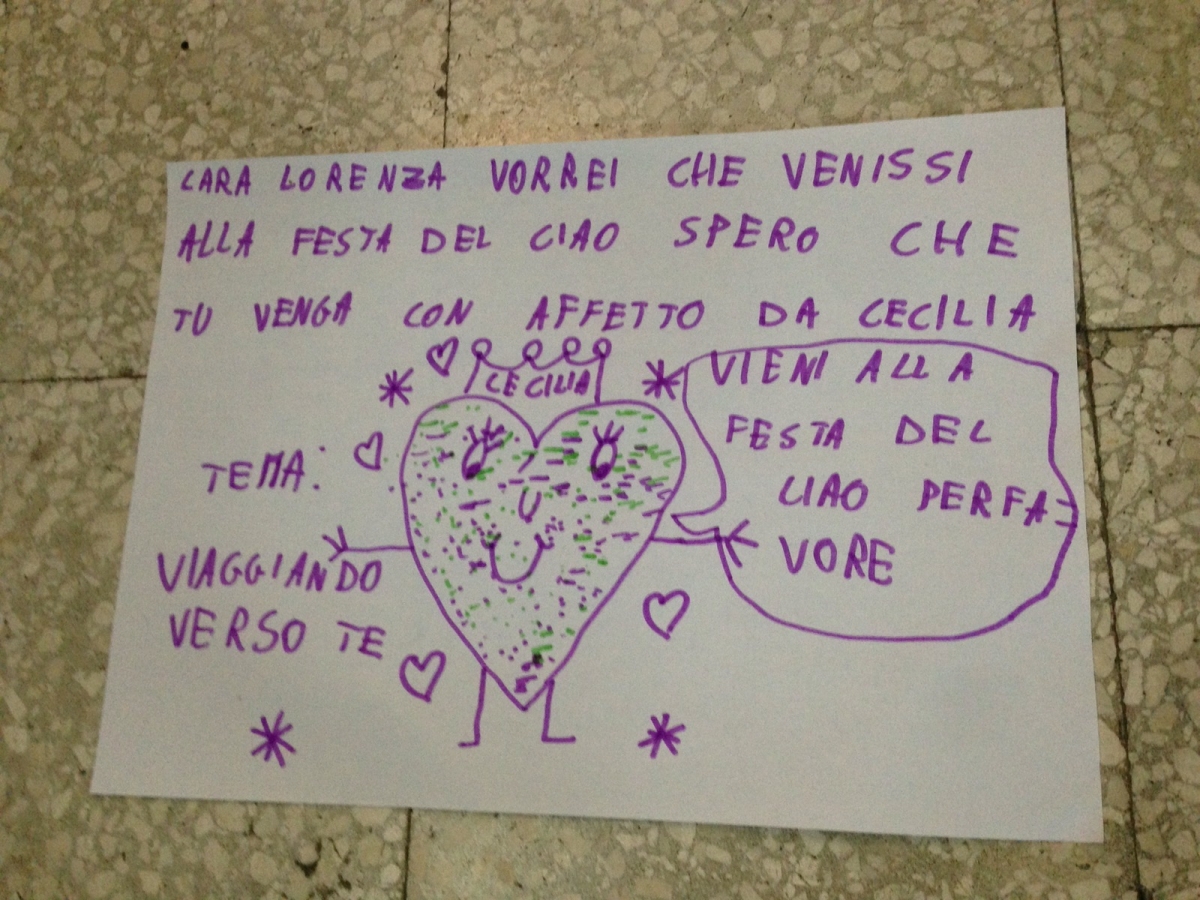 CARA LORENZA VORREI CHE VENISSI
ALLA FESTA DEL CIAO SPERO CHE
TU VENGA CON AFFETTO DA CECILIA
CECILIA
TEMA:
VIAGGIANDO
VERSO TE
VIENI ALLA
FESTA DEL
CIAO PERFA=
VORE